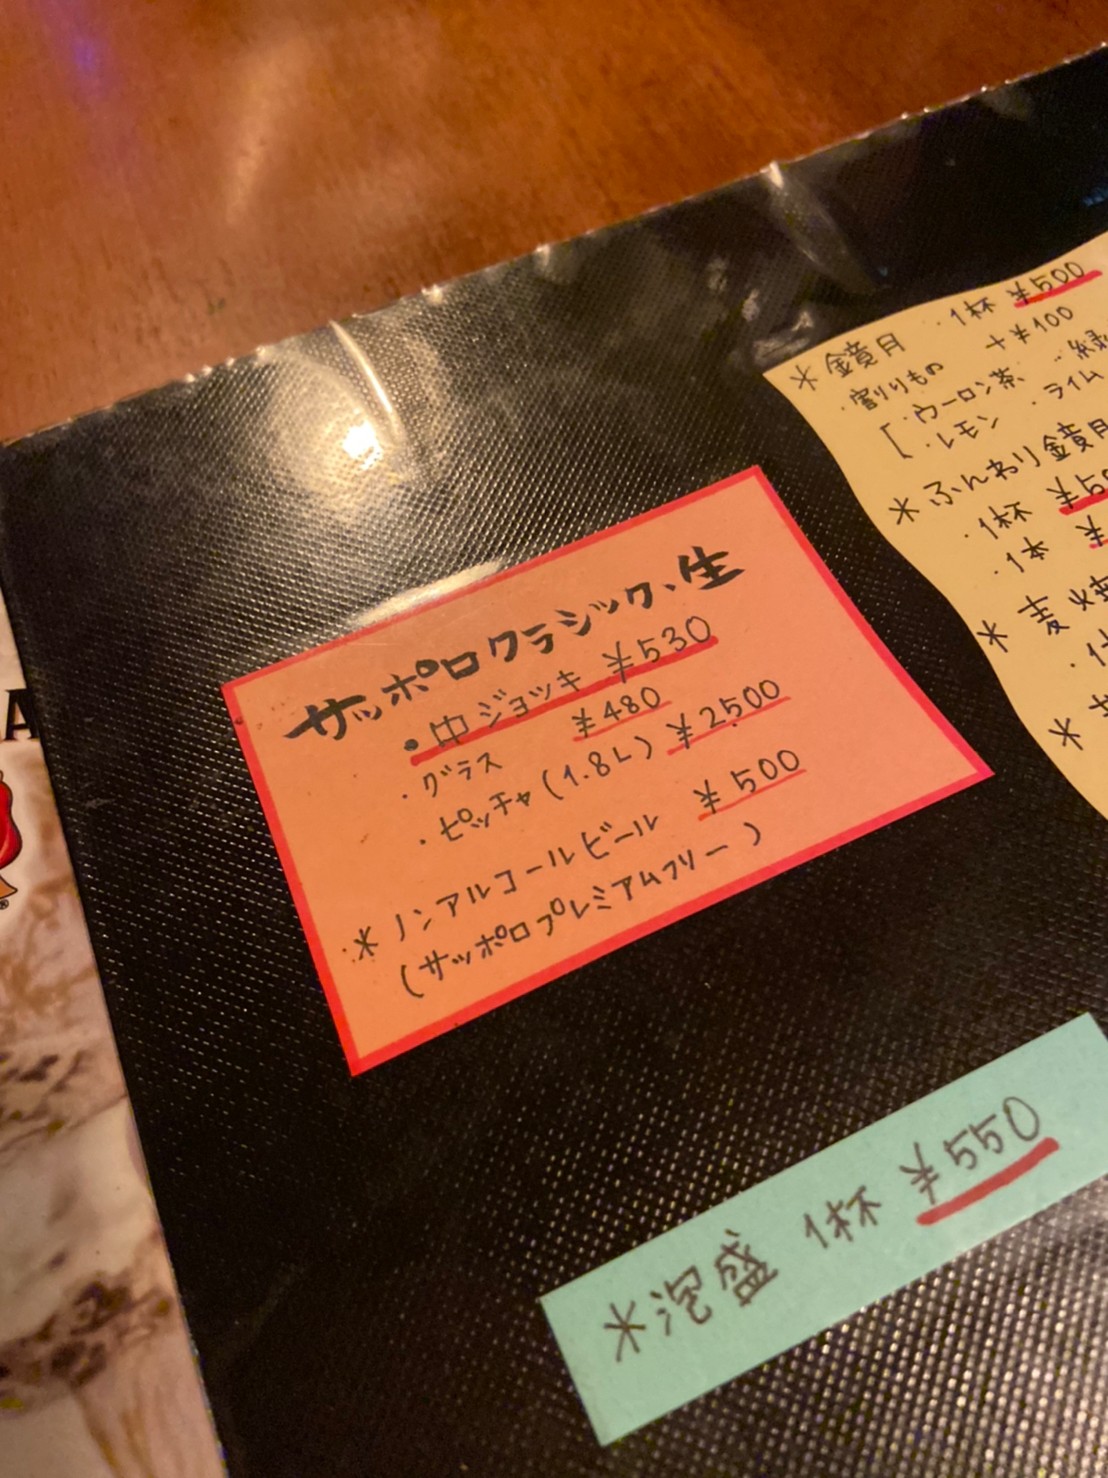 サッポロクラシック、生
・中ジョッキ ¥530
・グラス ¥480
・ピッチャ(1.8L) ¥2500
※ ノンアルコールビール ¥500
(サッポロプレミアムフリー)
※ 鏡月 ・1杯 ¥500
・割りもの +¥100
・ウーロン茶
・レモン ・ライム
※ ふんわり鏡月
・1杯
・1本 ¥
※ 麦
※泡盛 1杯 ¥550